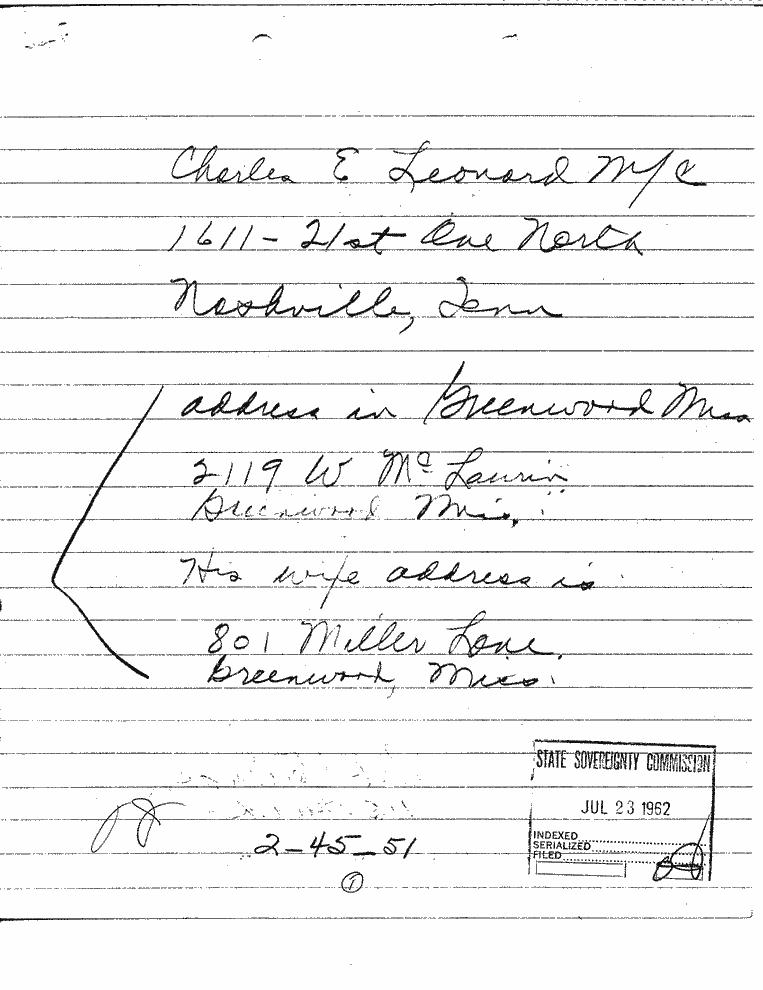 Charles E Leonard M/C
1611 - 21st Ave North
Nashville, Tenn
address in Greenwood Miss
2119 W Mc Laurin
Greenwood Miss.
His wife address is
801 Miller Lane.
Greenwood, Miss.
STATE SOVEREIGNTY COMMISSION
JUL 23 1962
INDEXED
SERIALIZED
FILED
2-45-51
1